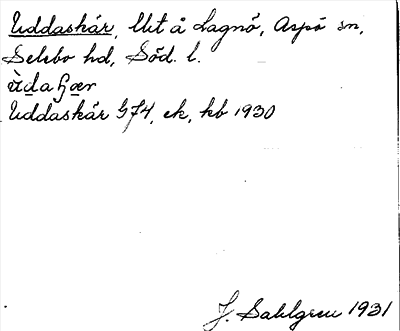 Uddaskär, lht å Lagnö, Aspö sn,
Selebo hd, Söd. l.
Uddaskär G74, ek, kb 1930
J. Sahlgren 1931